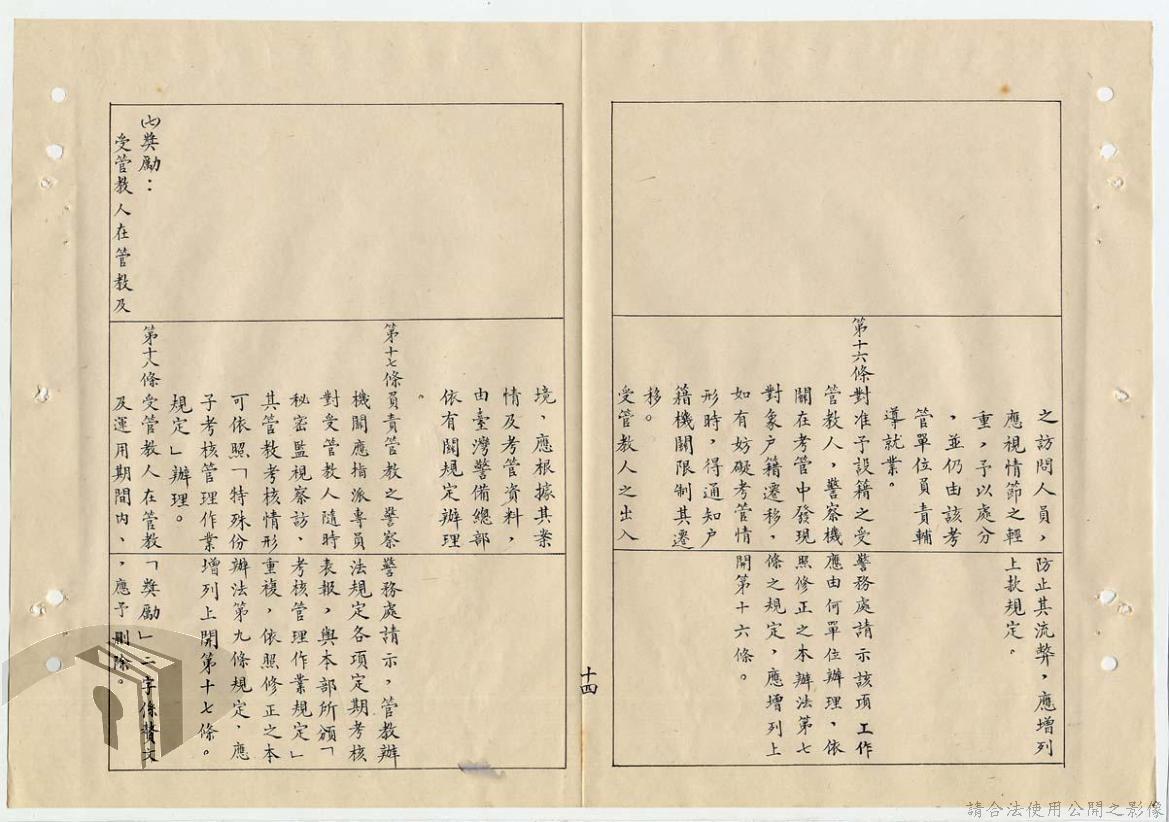 之訪問人員，
應視情節之輕
重，予以處分
，並仍由該考
管單位員責輔
導就業。
第十六條對准予設籍之受
管教人，警察機
關在考管中發現
對象户籍遷移，
如有妨礙考管情
形時，得通知户
籍機關限制其遷
移。
受管教人之出入
防止其流弊，應增列
上款規定。
警務處請示該項工作
應由何單位辦理，依
照修正之本辦法第七
條之規定，應增列上
開第十六條。
十四
㈦獎勵：
受管教人在管教及
境，應根據其業
情及考管資料，
由臺灣警備總部
依有關規定辦理
。
第十七條員責管教之警察
機關應指派專員
對受管教人隨時
秘密監視察訪，
其管教考核情形
可依照「特殊份
子考核管理作業
規定」辦理。
第十八條受管教人在管教
及運用期間內、
警務處請示，管教辦
法規定各項定期考核
表報，與本部所頒「
考核管理作業規定」
重複，依照修正之本
辦法第九條規定，應
增列上開第十七條。
「獎勵」二字係贅文
，應予刪除。
請合法使用公開之影像